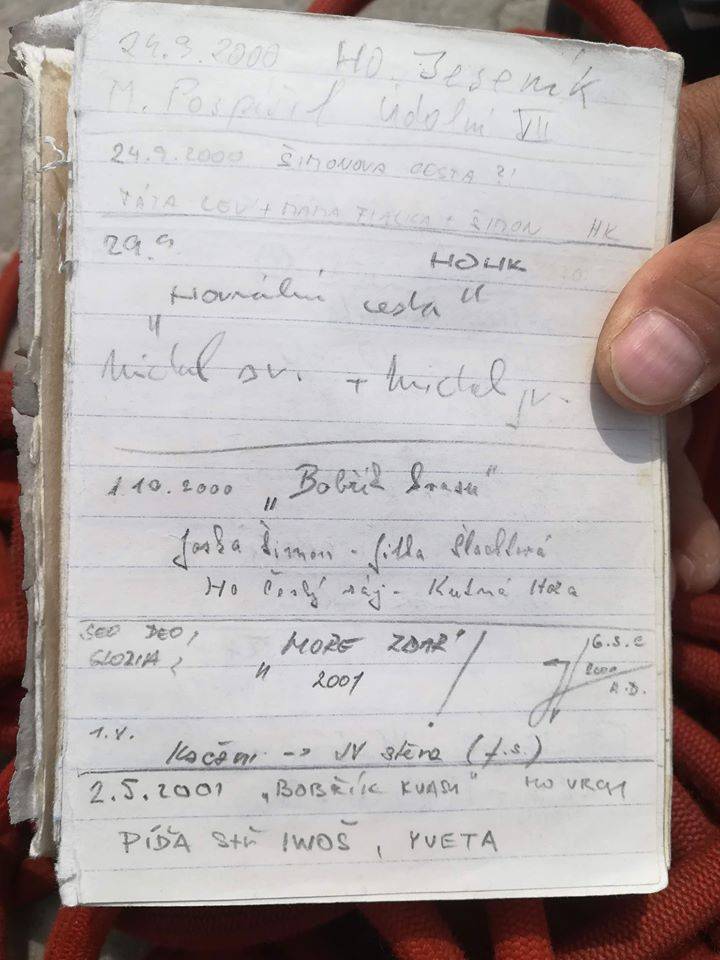 24.9.2000 HO. Jeseník
M. Pospíšil Údolní VII
24.9.2000 ŠIMONOVA CESTA ?!
TÁTA LEV + MÁMA + ŠIMON HK
29.9 HOHK
"Normální cesta"
Michal sr. + Michal jr.
1.10.2000 "Bobřík
Joska Šimon - Jitka Šlechtová
Ho Český ráj - Kutná Hora
SEO DEO,
GLORIA, "MOŘE ZDAR" 2001
2000
A.D.
1.V. Kačení -> JV stěna (f.s.)
2.5.2001 "BOBŘÍK KVASU" HO VRCHY
PÍĎA IWOŠ, YVETA